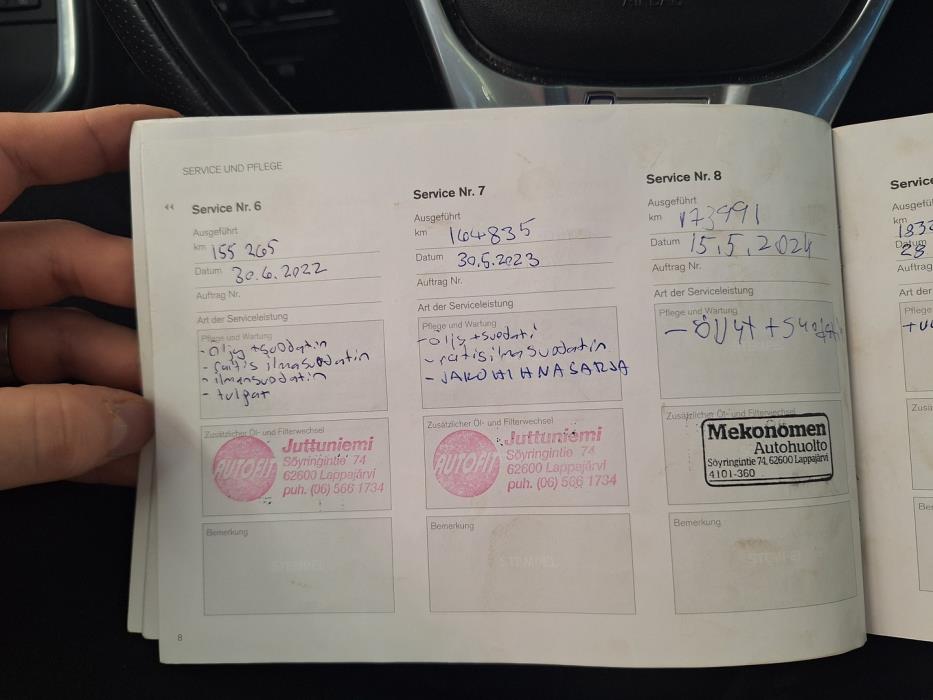 SERVICE UND PFLEGE
Service Nr. 6
Ausgeführt
km 155 265
Datum 30.6.2022
Auftrag Nr.
Art der Serviceleistung
Pflege und Wartung
- öljy + suodatin
- raitis ilmasuodatin
- ilmansuodatin
- tulpat
Zusätzlicher Öl- und Filterwechsel
AUTOFIT
Juttuniemi
Söyringintie 74
62600 Lappajärvi
puh. (06) 566 1734
Bemerkung
STEMPEL
8
Service Nr. 7
Ausgeführt
km 164835
Datum 30.5.2023
Auftrag Nr.
Art der Serviceleistung
Pflege und Wartung
- öljy + suodati
- raitisilmasuodatin
- JAKOHIHNASARJA
Zusätzlicher Öl- und Filterwechsel
AUTOFIT
Juttuniemi
Söyringintie 74
62600 Lappajärvi
puh. (06) 566 1734
Bemerkung
STEMPEL
Service Nr. 8
Ausgeführt
km 173991
Datum 15.5.2024
Auftrag Nr.
Art der Serviceleistung
Pflege und Wartung
- Öljyt +
Zusätzlicher Öl- und Filterwechsel
Mekonomen
Autohuolto
Söyringintie 74, 62600 Lappajärvi
4101-360
Bemerkung
STEMPEL
Service
Ausgefü
km
183
Datum
28
Auftrag
Art der
Pflege
Zusä
Be